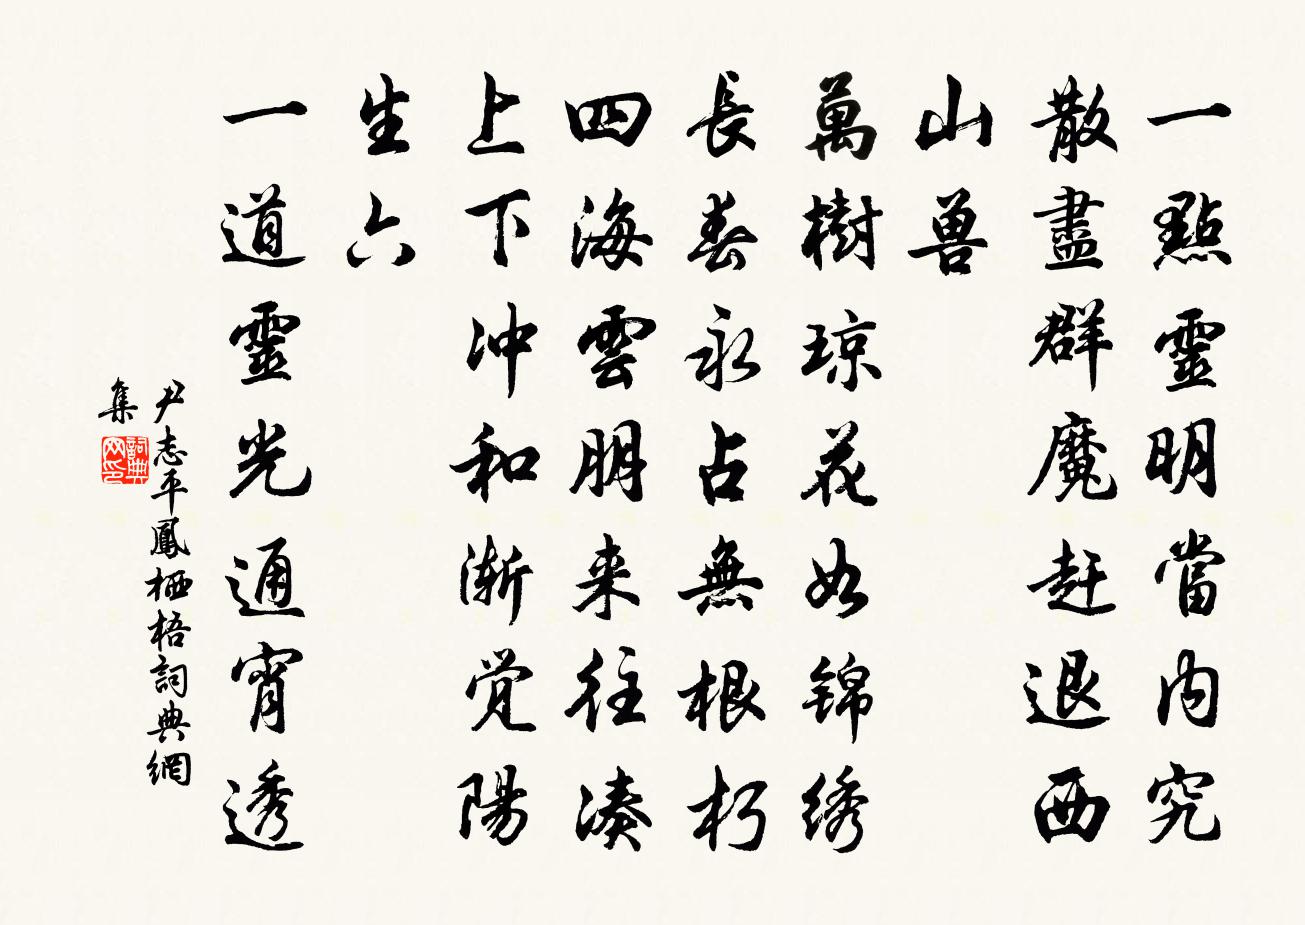 一點靈明當内究
散盡群魔赶退西
山兽
萬樹琼花如锦绣
長春永占無根朽
四海雲朋来往凑
上下冲和渐觉陽
生六
一道靈光通宵透
尹志平鳳栖梧詞典網
集
詞典
网印